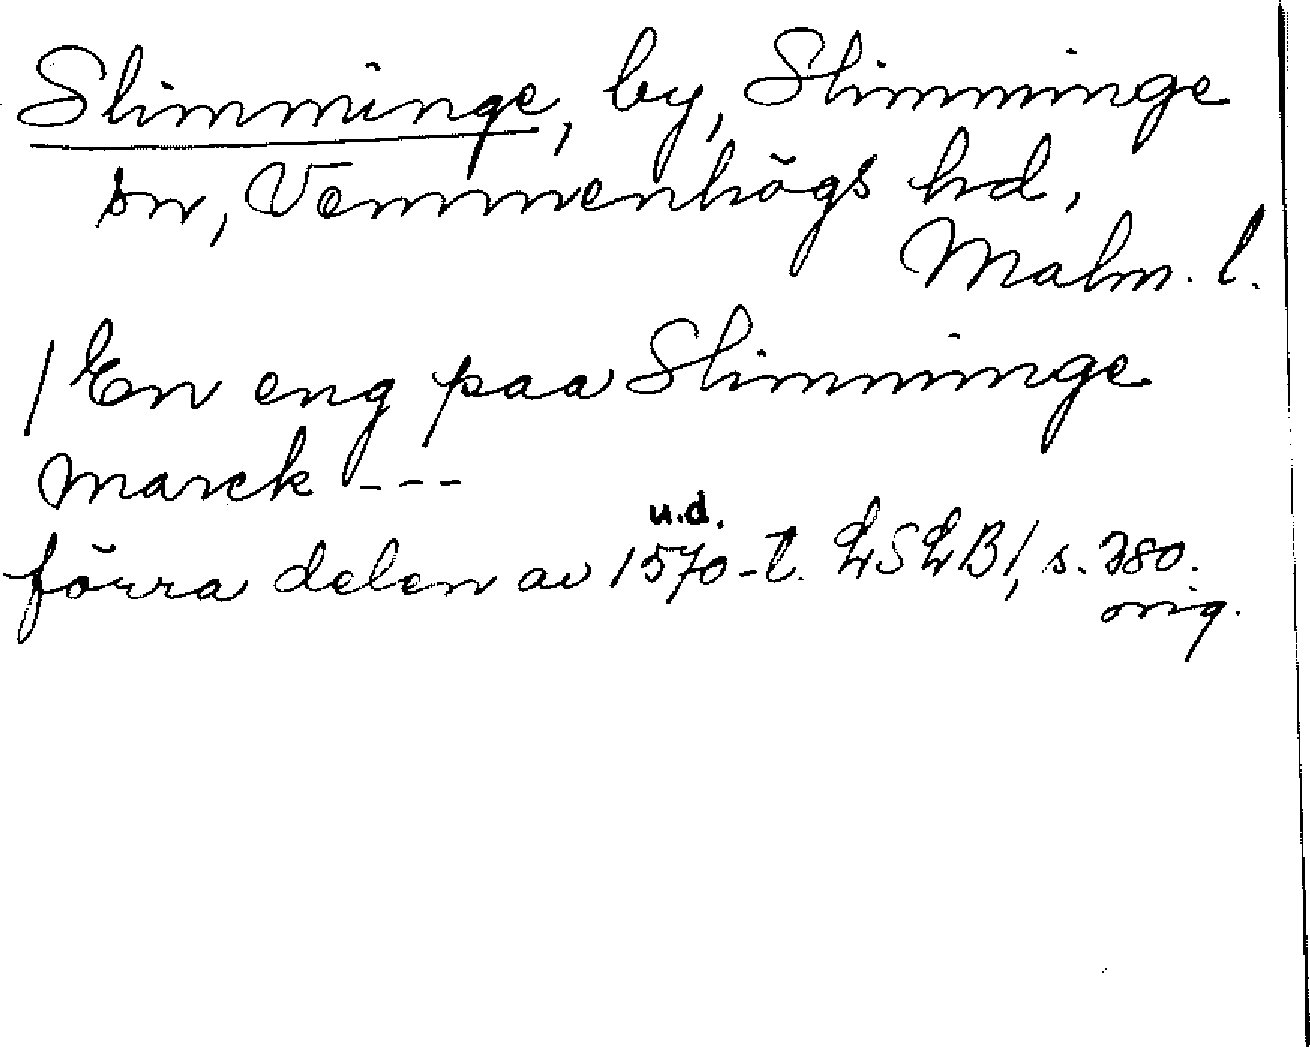 Slimminge, by, Slimminge
sn, Vemmenhögs hd,
Malm. l.
/ En eng paa Slimminge
marck ---
u.d.
förra delen av 1570-t. LSLB1, s. 280.
orig.